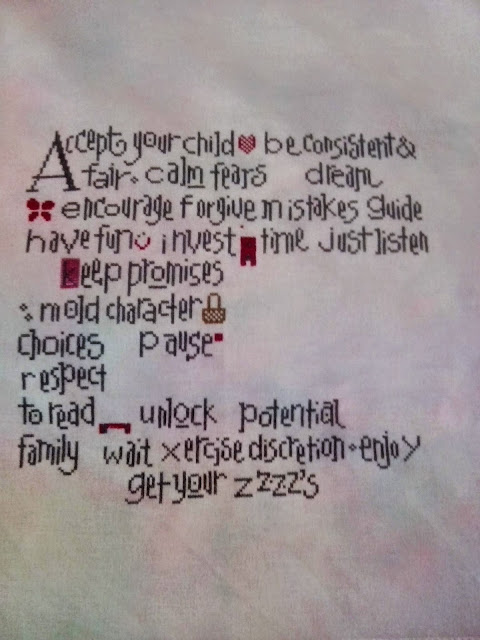 Accept your child be consistent &
fair calm fears dream
encourage forgive mistakes guide
have fun invest time just listen
keep promises
mold character
choices pause
respect
to read unlock potential
family wait xercise discretion enjoy
get your zzzz's